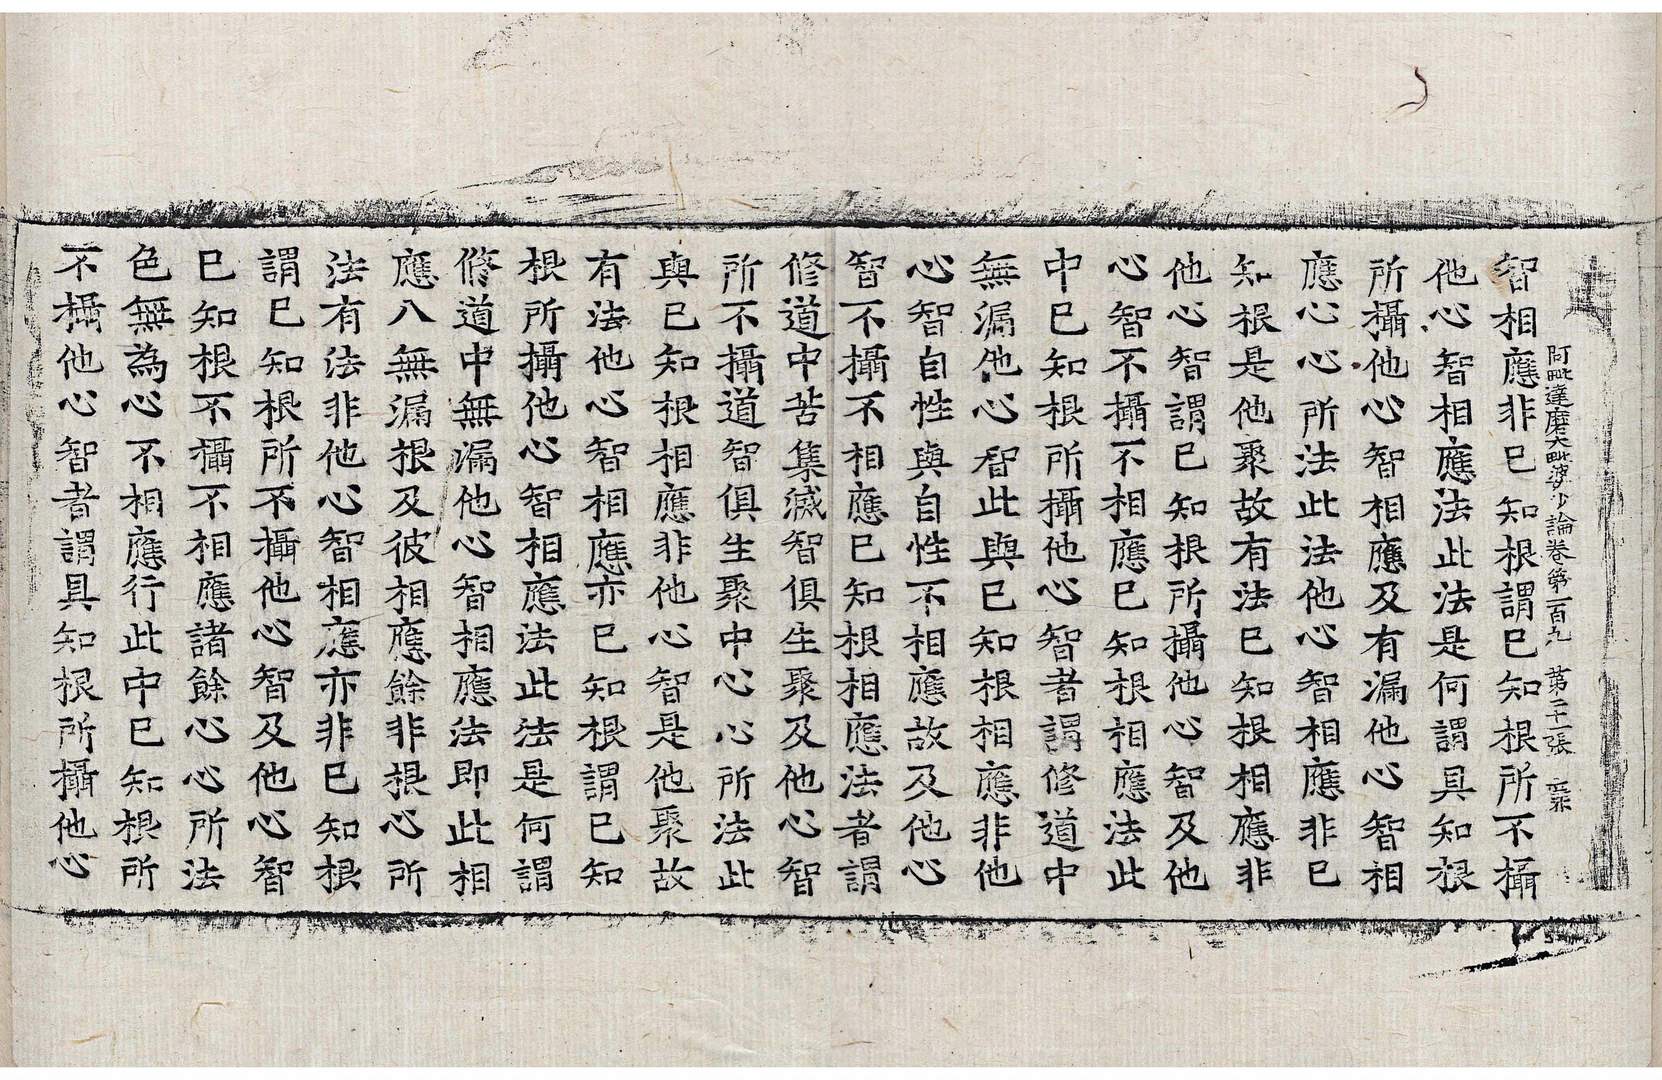 阿毗達磨大毗婆沙論卷第一百九 第二十一張
智相應非已知根謂已知根所不攝
他心智相應法此法是何謂具知根
所攝他心智相應及有漏他心智相
應心心所法此法他心智相應非已
知根是他聚故有法已知根相應非
他心智謂已知根所攝他心智及他
心智不攝不相應已知根相應法此
中已知根所攝他心智者謂修道中
無漏他心智此與已知根相應非他
心智自性與自性不相應故及他心
智不攝不相應已知根相應法者謂
修道中苦集滅智俱生聚及他心智
所不攝道智俱生聚中心心所法此
與已知根相應非他心智是他聚故
有法他心智相應亦已知根謂已知
根所攝他心智相應法此法是何謂
脩道中無漏他心智相應法即此相
應八無漏根及彼相應餘非根心所
法有法非他心智相應亦非已知根
謂已知根所不攝他心智及他心智
已知根不攝不相應諸餘心心所法
色無為心不相應行此中已知根所
不攝他心智者謂具知根所攝他心